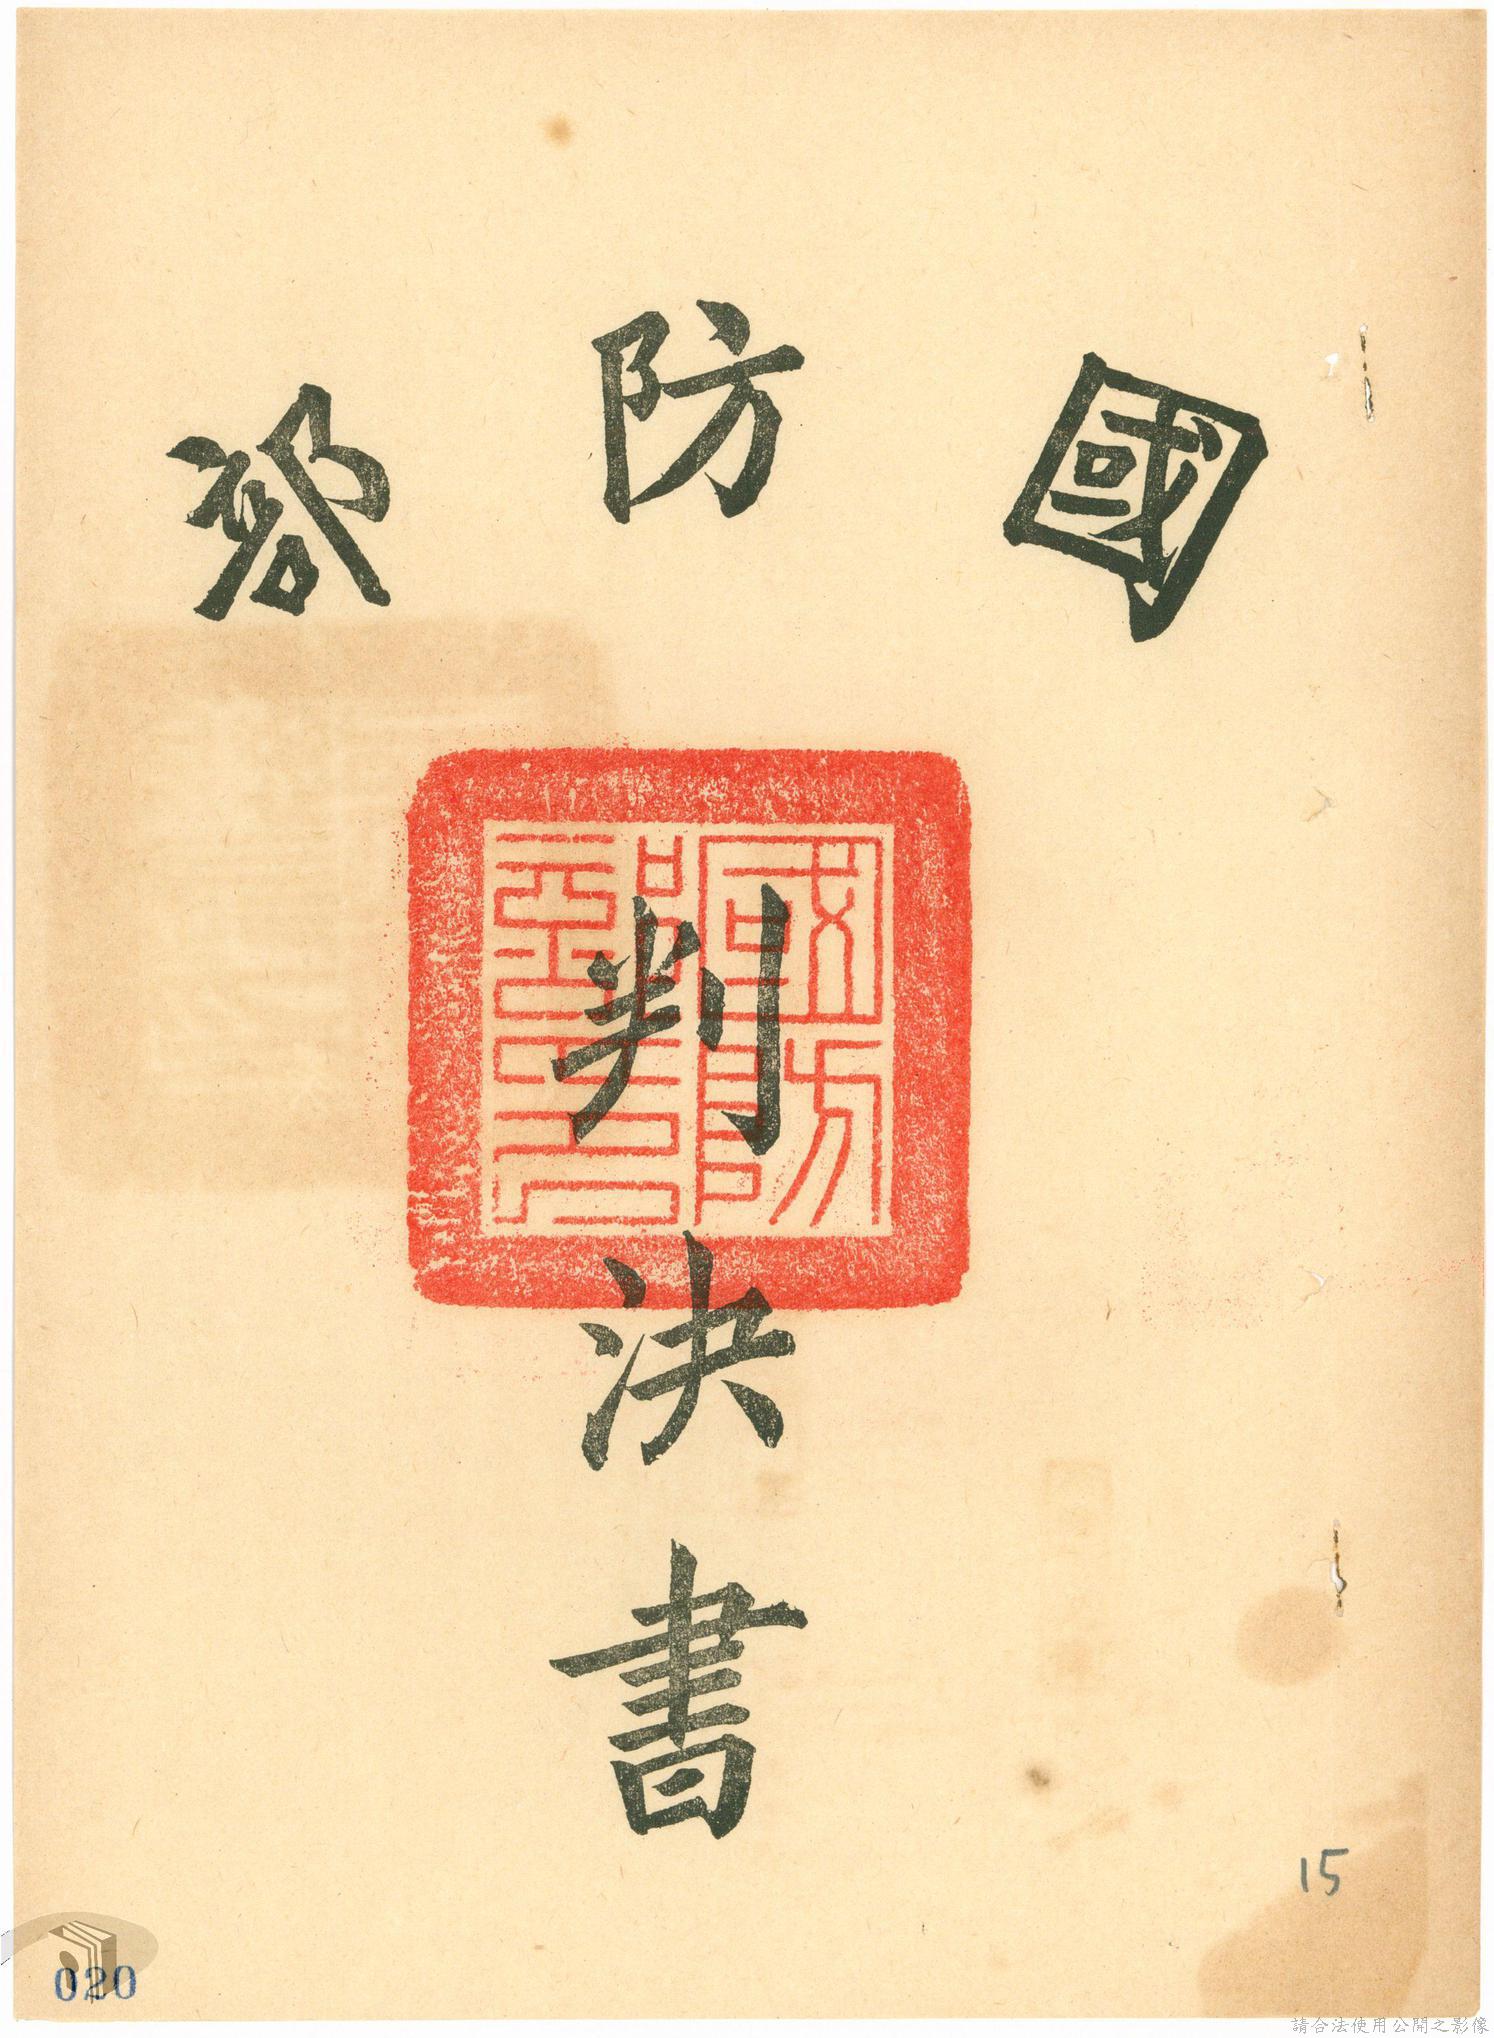 國防部
判決書
國防部印
15
020
請合法使用公開之影像